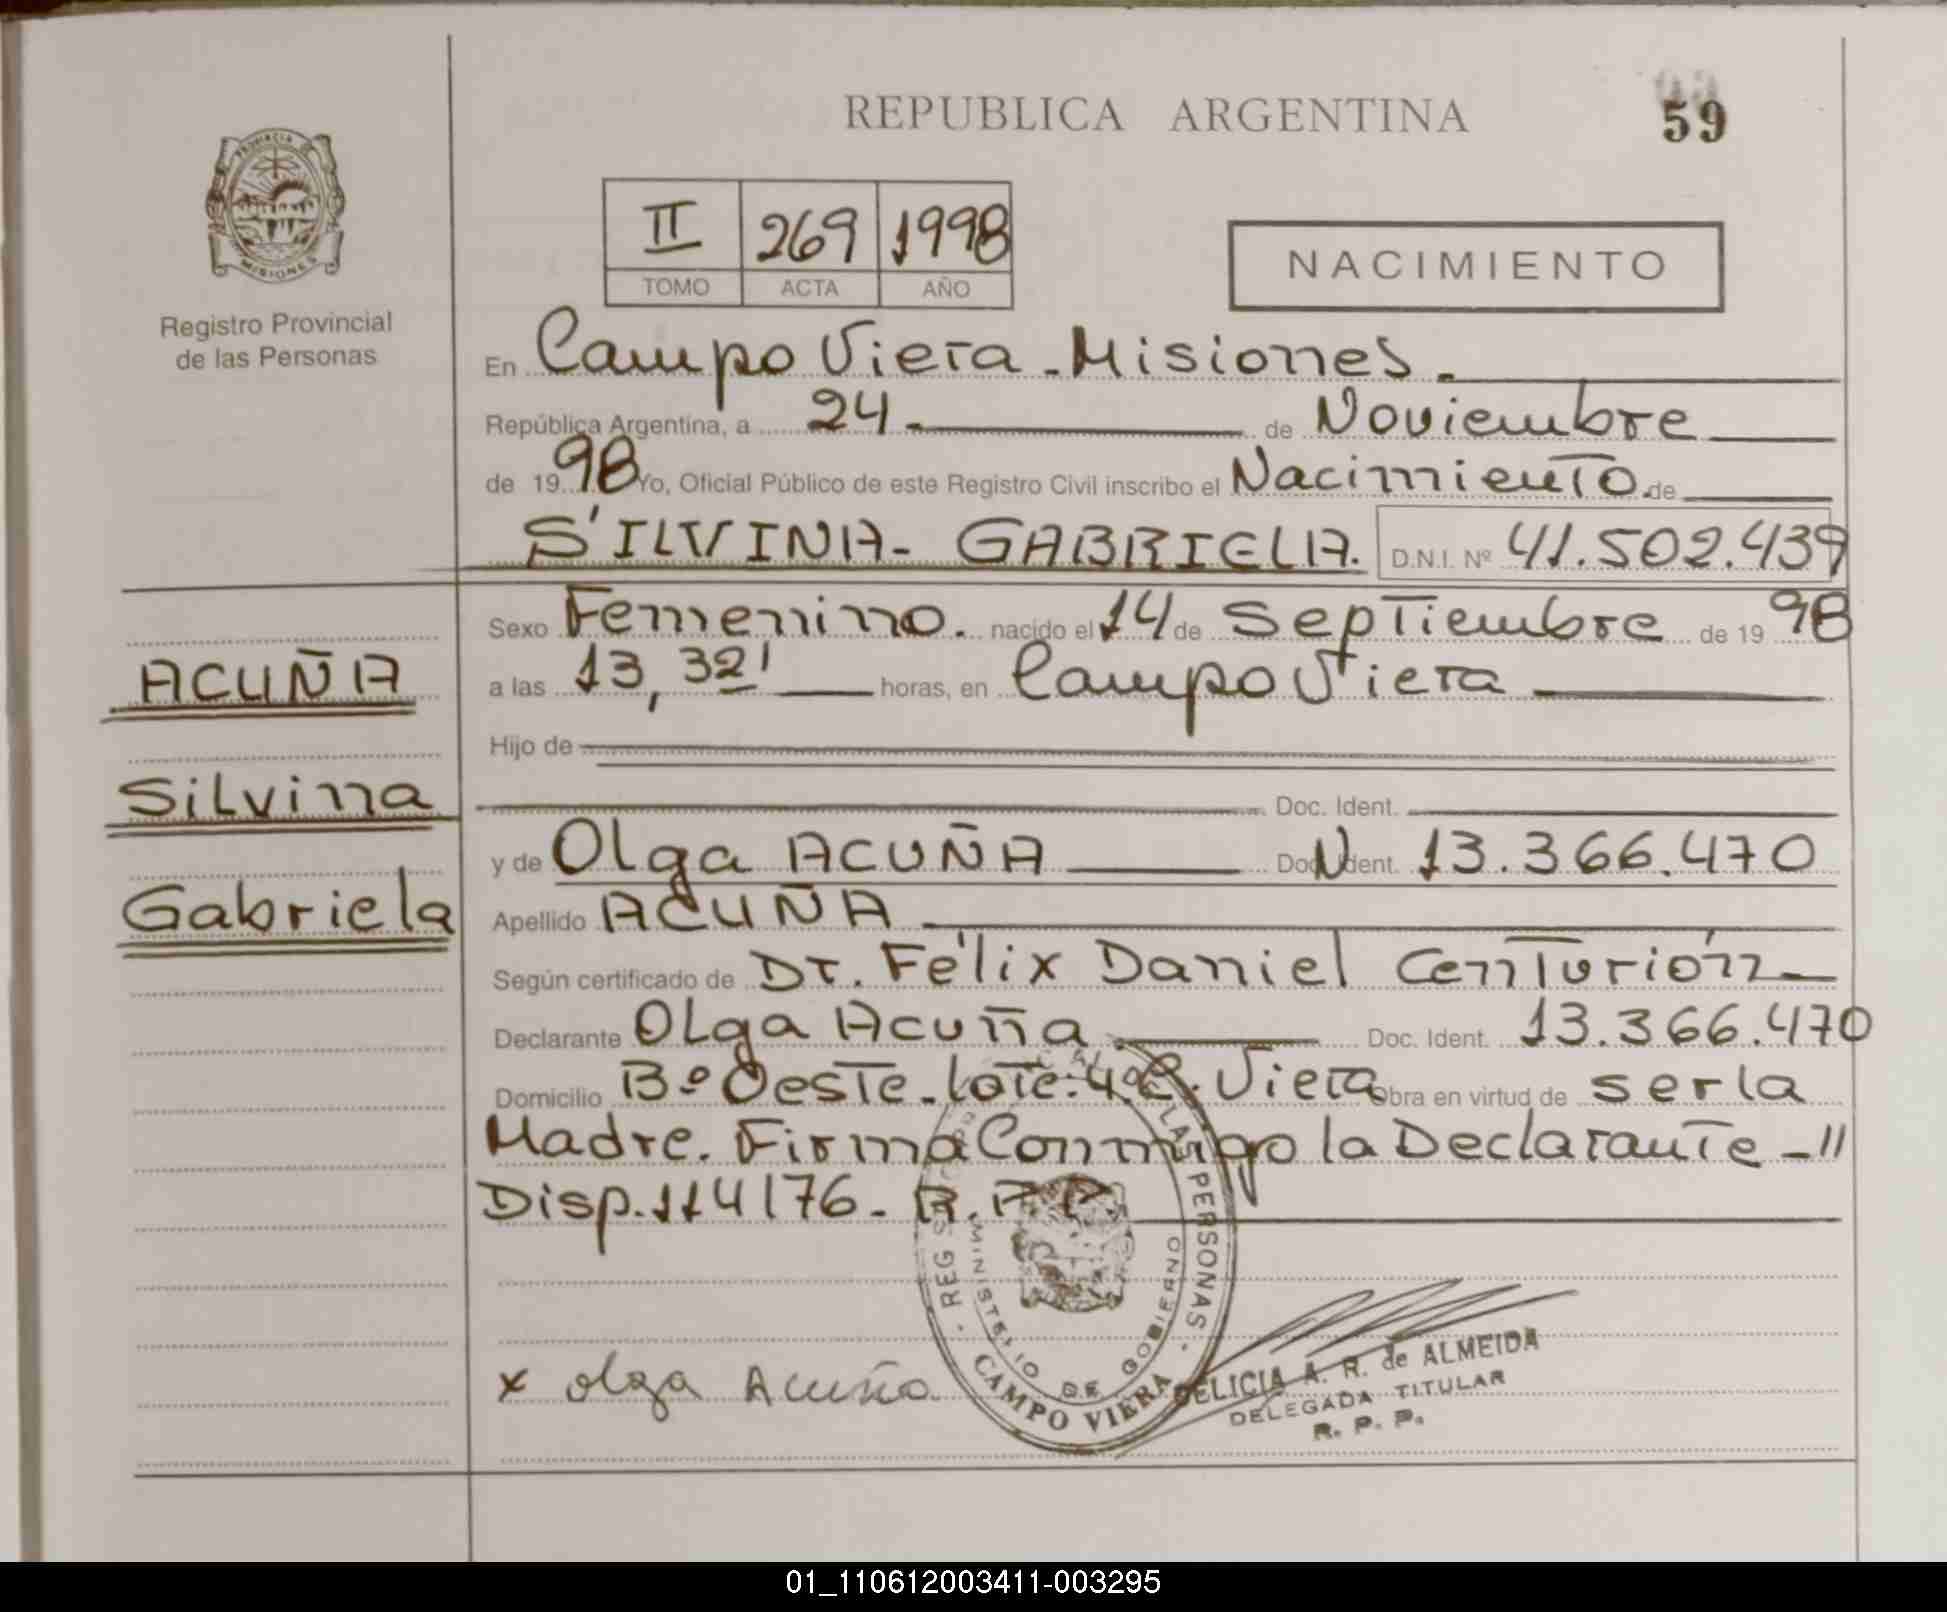 REPUBLICA ARGENTINA
59
PROVINCIA DE
MISIONES
Registro Provincial
de las Personas
II 269 1998
TOMO ACTA AÑO
NACIMIENTO
En Campo Viera - Misiones.
República Argentina, a 24 - de Noviembre
de 1998 Yo, Oficial Público de este Registro Civil inscribo el Nacimiento de
SILVINA - GABRIELA. D.N.I. Nº 41.502.439
Sexo Femenino. nacido el 14 de Septiembre de 1998
ACUÑA
a las 13,32' horas, en Campo Viera
Hijo de
Silvina
Doc. Ident.
y de Olga ACUÑA Doc. Ident. N 13.366.470
Gabriela
Apellido ACUÑA
Según certificado de Dr. Félix Daniel Centurión
Declarante Olga Acuña. Doc. Ident. 13.366.470
Domicilio Bº Oeste - Lote: 4. C. Viera Obra en virtud de ser la
Madre. Firma Conmigo la Declarante - "
Disp. 114/76 - R.P.P.
x Olga Acuña
LAS PERSONAS
MINISTERIO DE GOBIERNO
CAMPO VIERA
DELICIA A. R. de ALMEIDA
DELEGADA TITULAR
R. P. P.
01_110612003411-003295